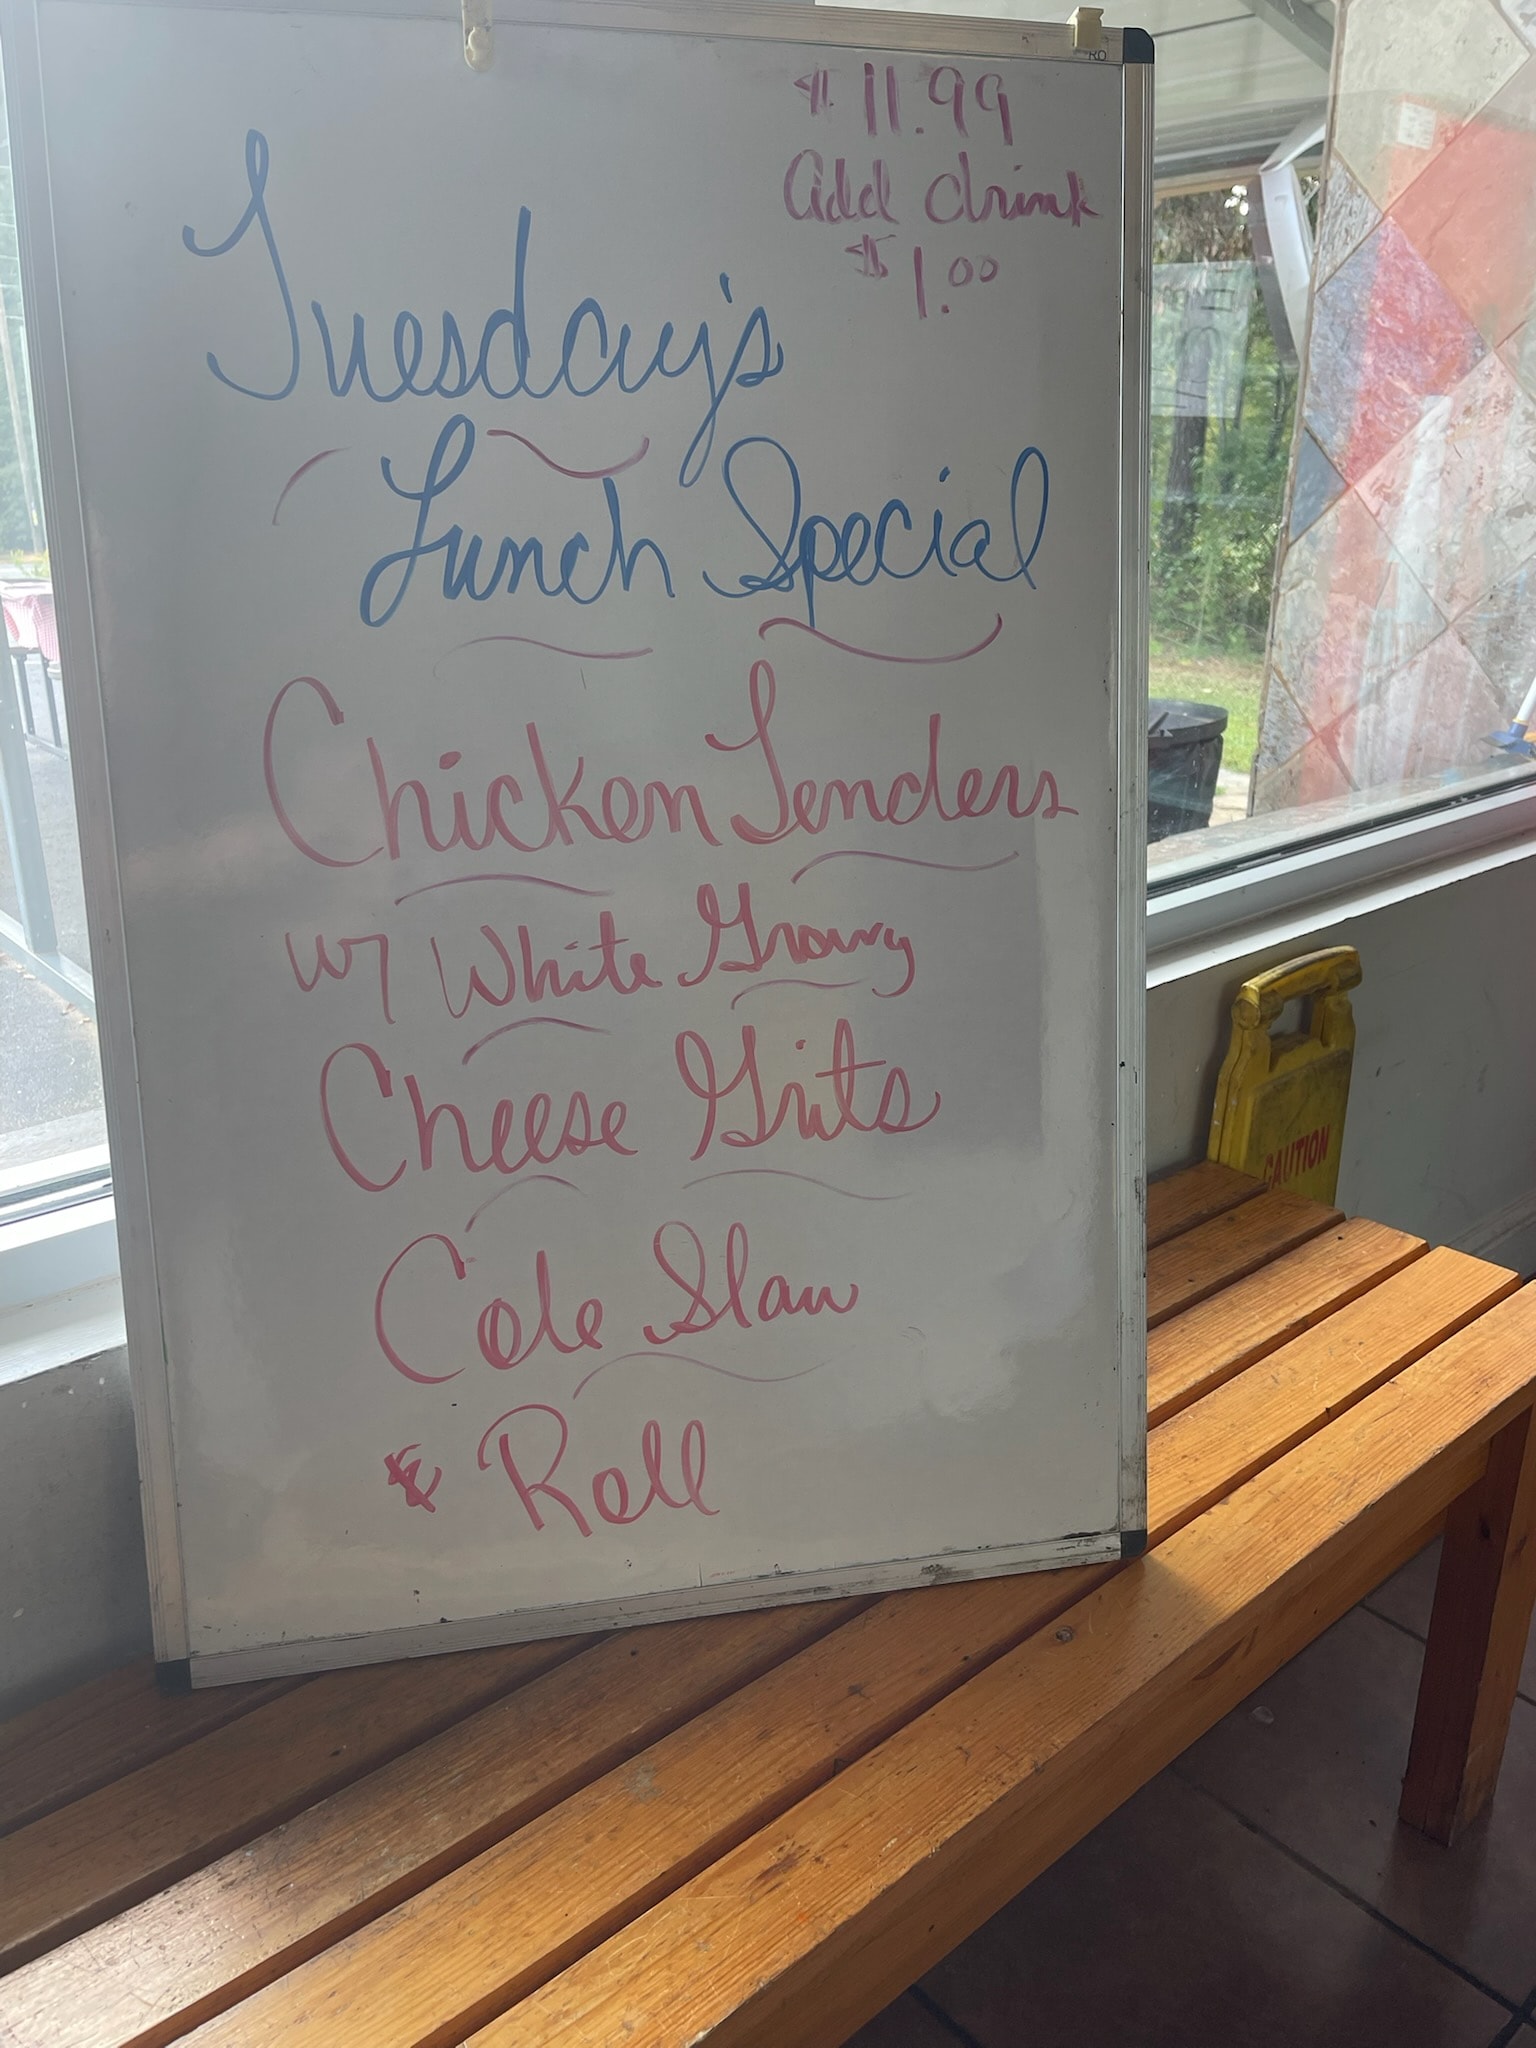 $11.99
Add drink
$1.00
Tuesday's
Lunch Special
Chicken Tenders
w/ White Gravy
Cheese Grits
Cole Slaw
& Roll
CAUTION